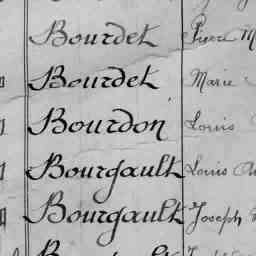 Bourdet Pierre M
Bourdet Marie
Bourdon Louis
Bourgault Louis
Bourgault Joseph